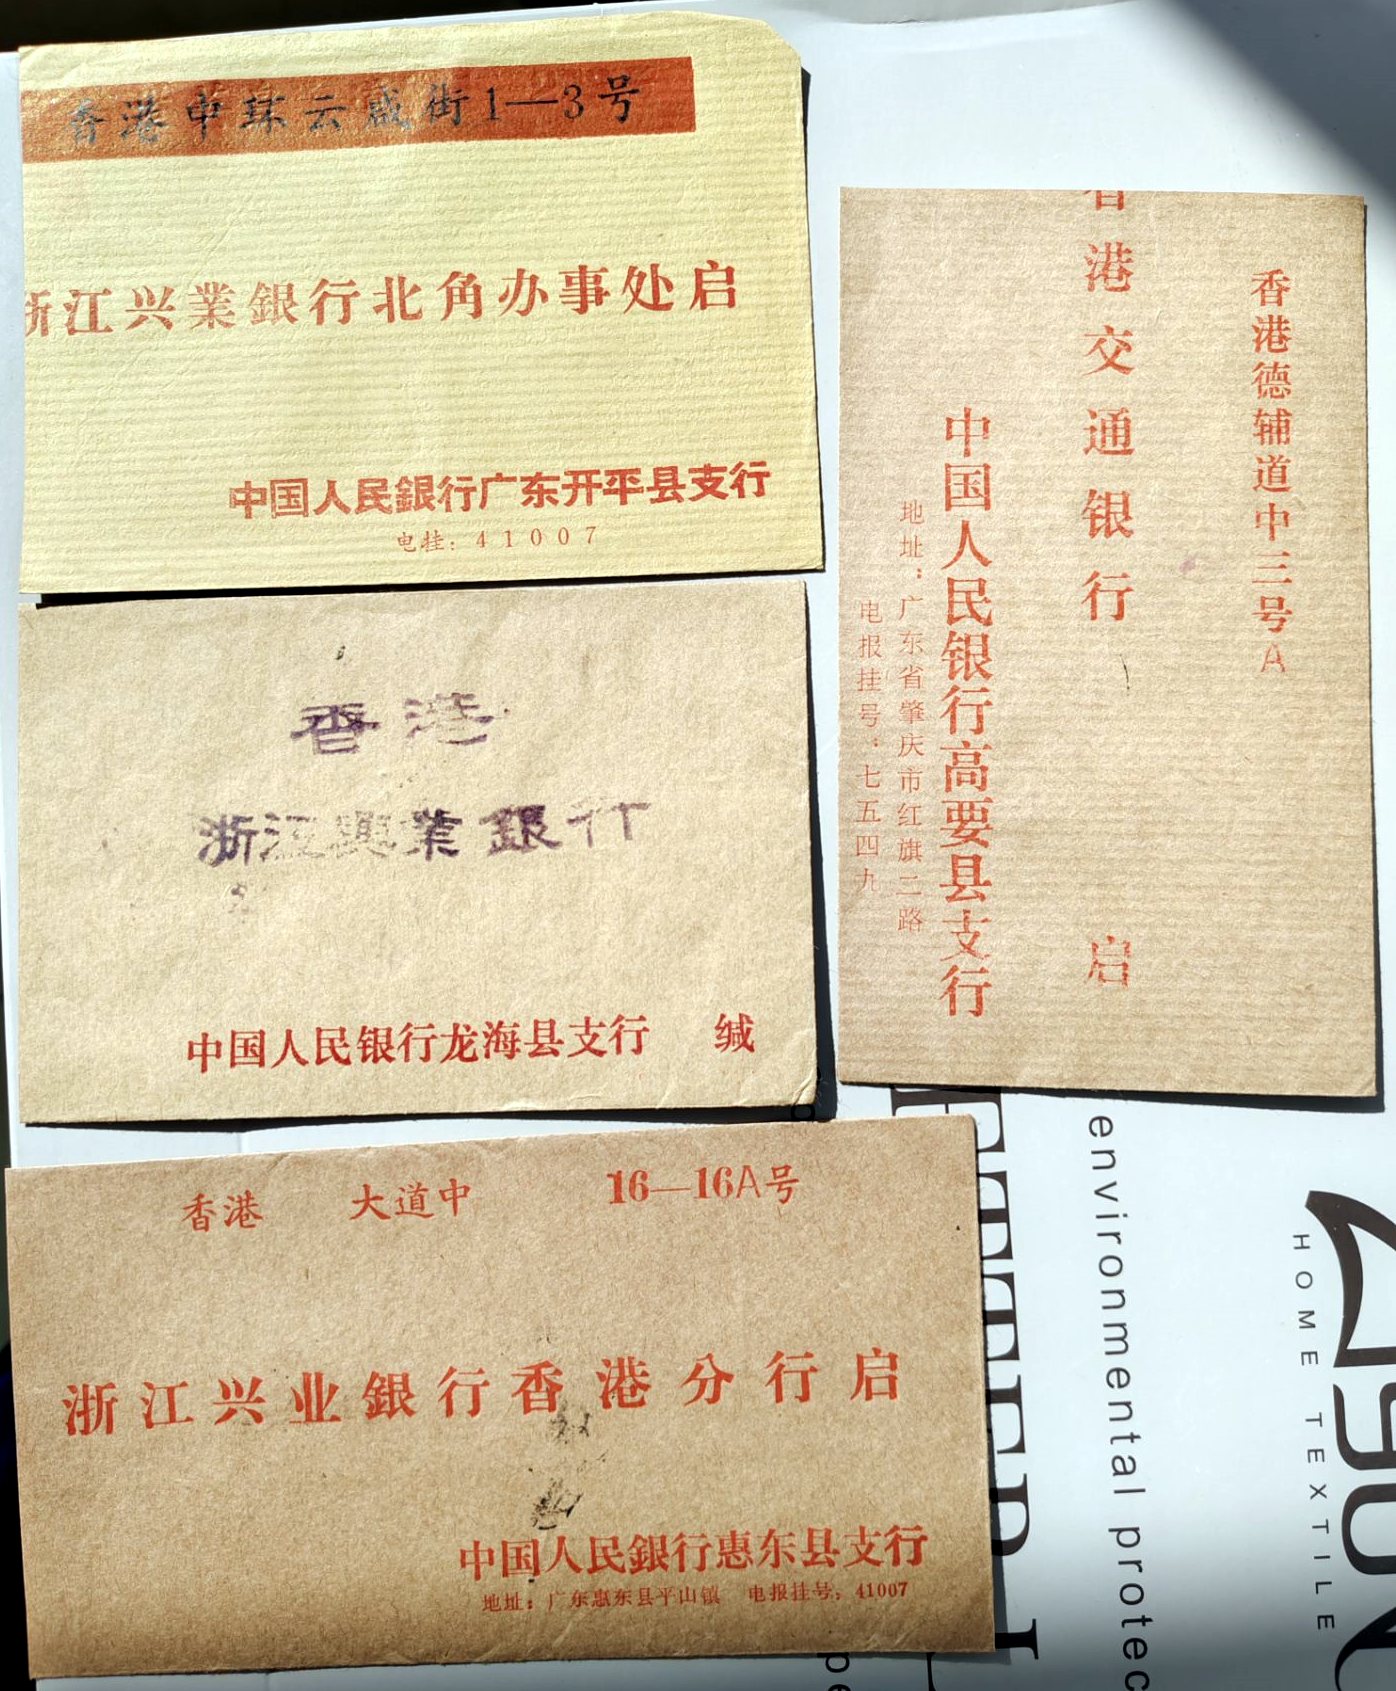 香港中环云咸街1—3号
浙江兴業銀行北角办事处启
中国人民銀行广东开平县支行
电挂：41007
香港
浙江興業銀行
中国人民银行龙海县支行 缄
香港 大道中 16—16A号
浙江兴业銀行香港分行启
中国人民銀行惠东县支行
地址：广东惠东县平山镇 电报挂号：41007
香港德辅道中三号A
香港交通银行 启
中国人民银行高要县支行
地址：广东省肇庆市红旗二路
电报挂号：七五四九
environmental protec
HOME TEXTILE